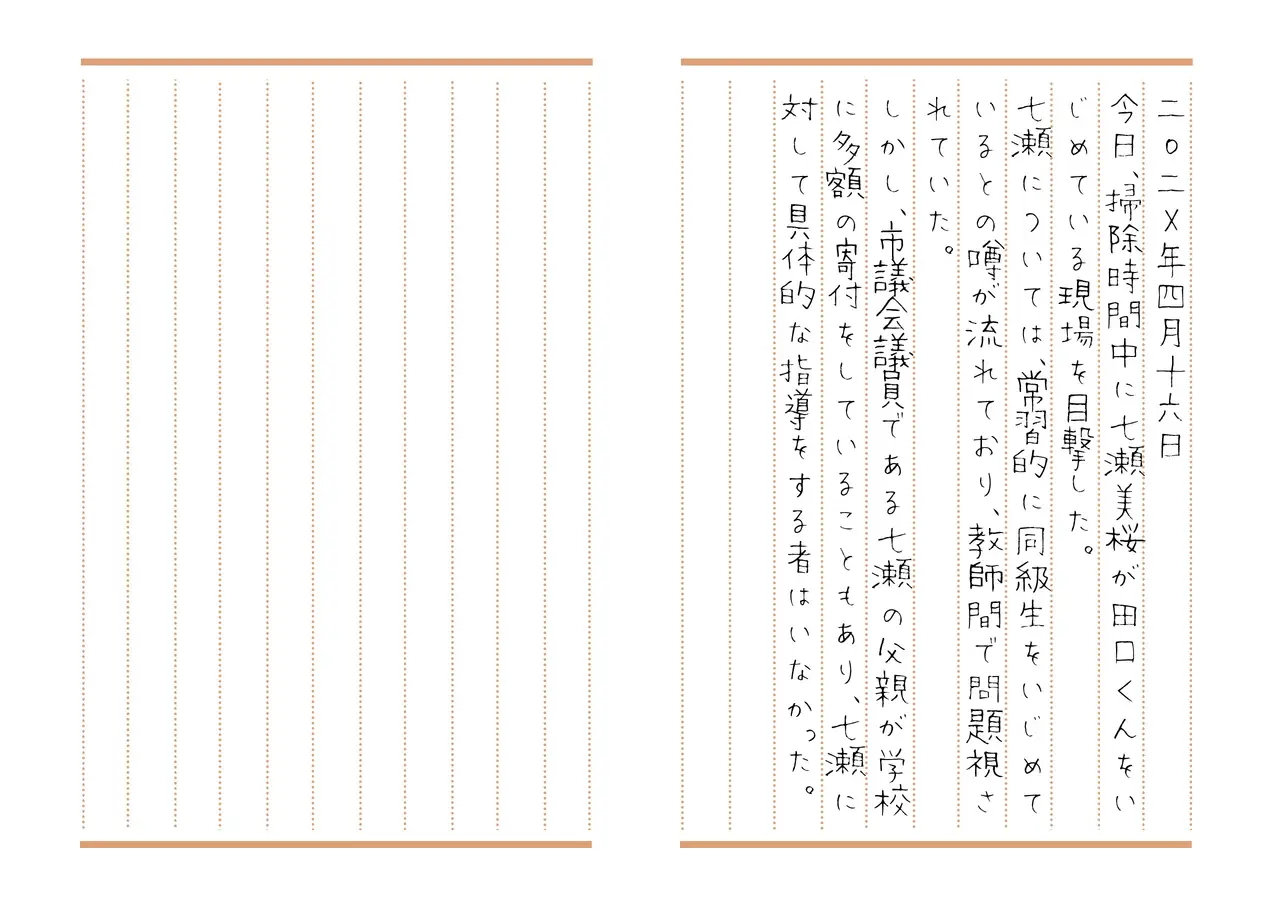 二〇二X年四月十六日
今日、掃除時間中に七瀬美桜が田口くんをい
じめている現場を目撃した。
七瀬については、常習的に同級生をいじめて
いるとの噂が流れており、教師間で問題視さ
れていた。
しかし、市議会議員である七瀬の父親が学校
に多額の寄付をしていることもあり、七瀬に
対して具体的な指導をする者はいなかった。